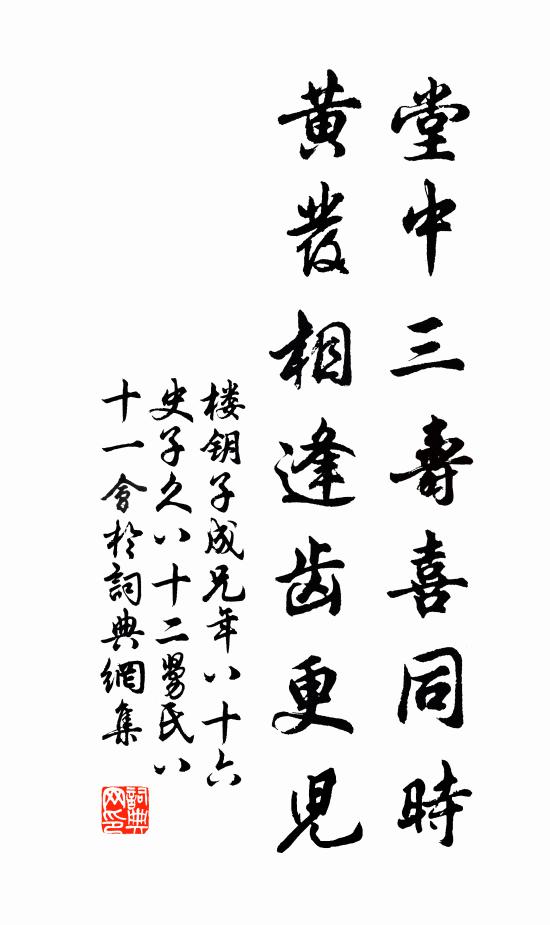 堂中三壽喜同時
黄發相逢齿更兒
楼钥子成兄年八十六
史子久八十二舅氏八
十一會於詞典網集
詞典网印